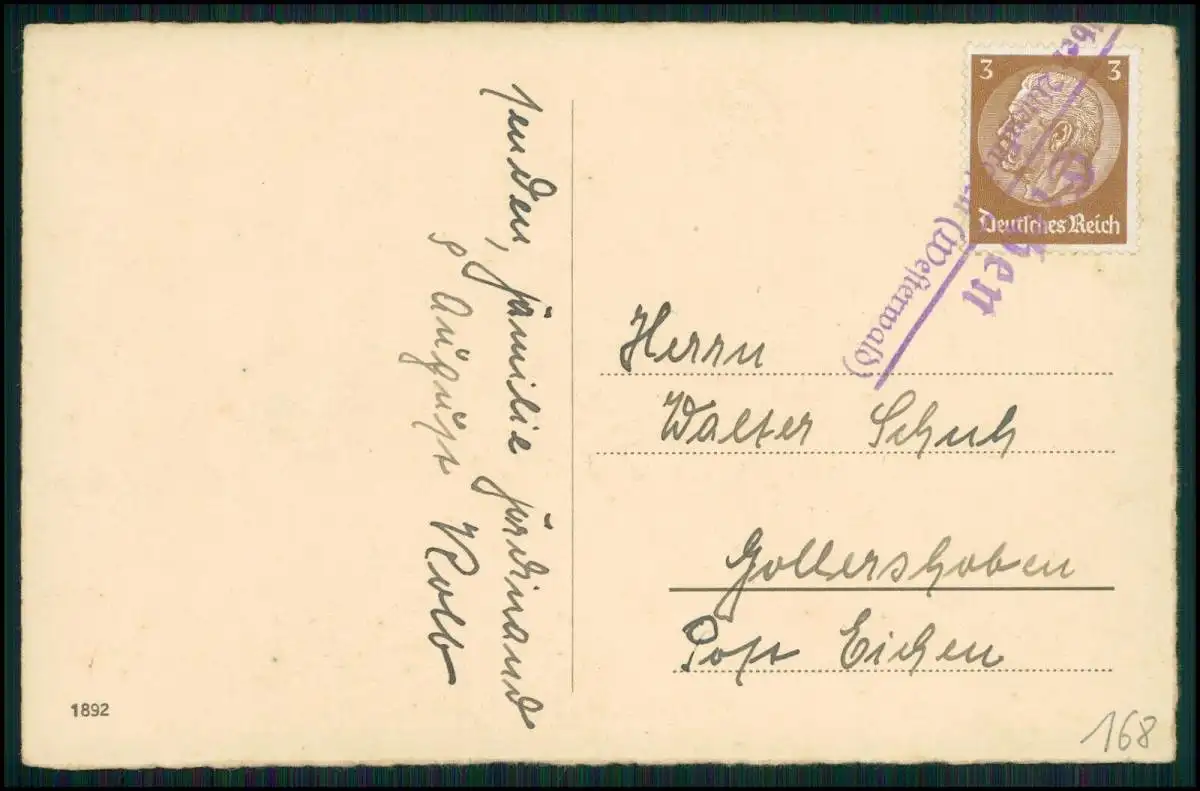 senden, Familie Ferdinand
& August Kolb
3 3
Deutsches Reich
(Westerwald)
Herrn
Walter Schuh
Gollershoben
Post Eichen
1892
168